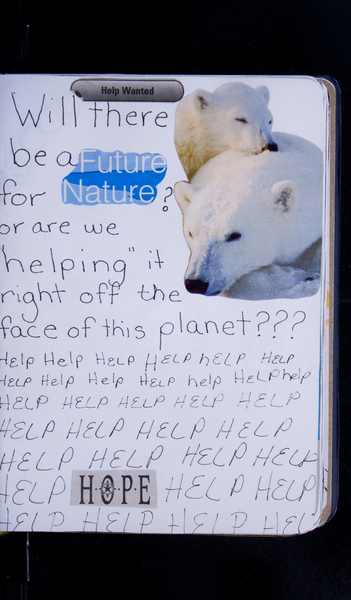 Help Wanted
Will there
be a Future
for Nature?
or are we
"helping" it
right off the
face of this planet???
Help Help HELP HELP hELP HELP
HELP Help Help HELP help HELP help
HELP HELP HELP HELP HELP
HELP HELP HELP HELP
HELP HELP HELP HELP
HELP HOPE HELP HELP
HELP HELP HELP HELP